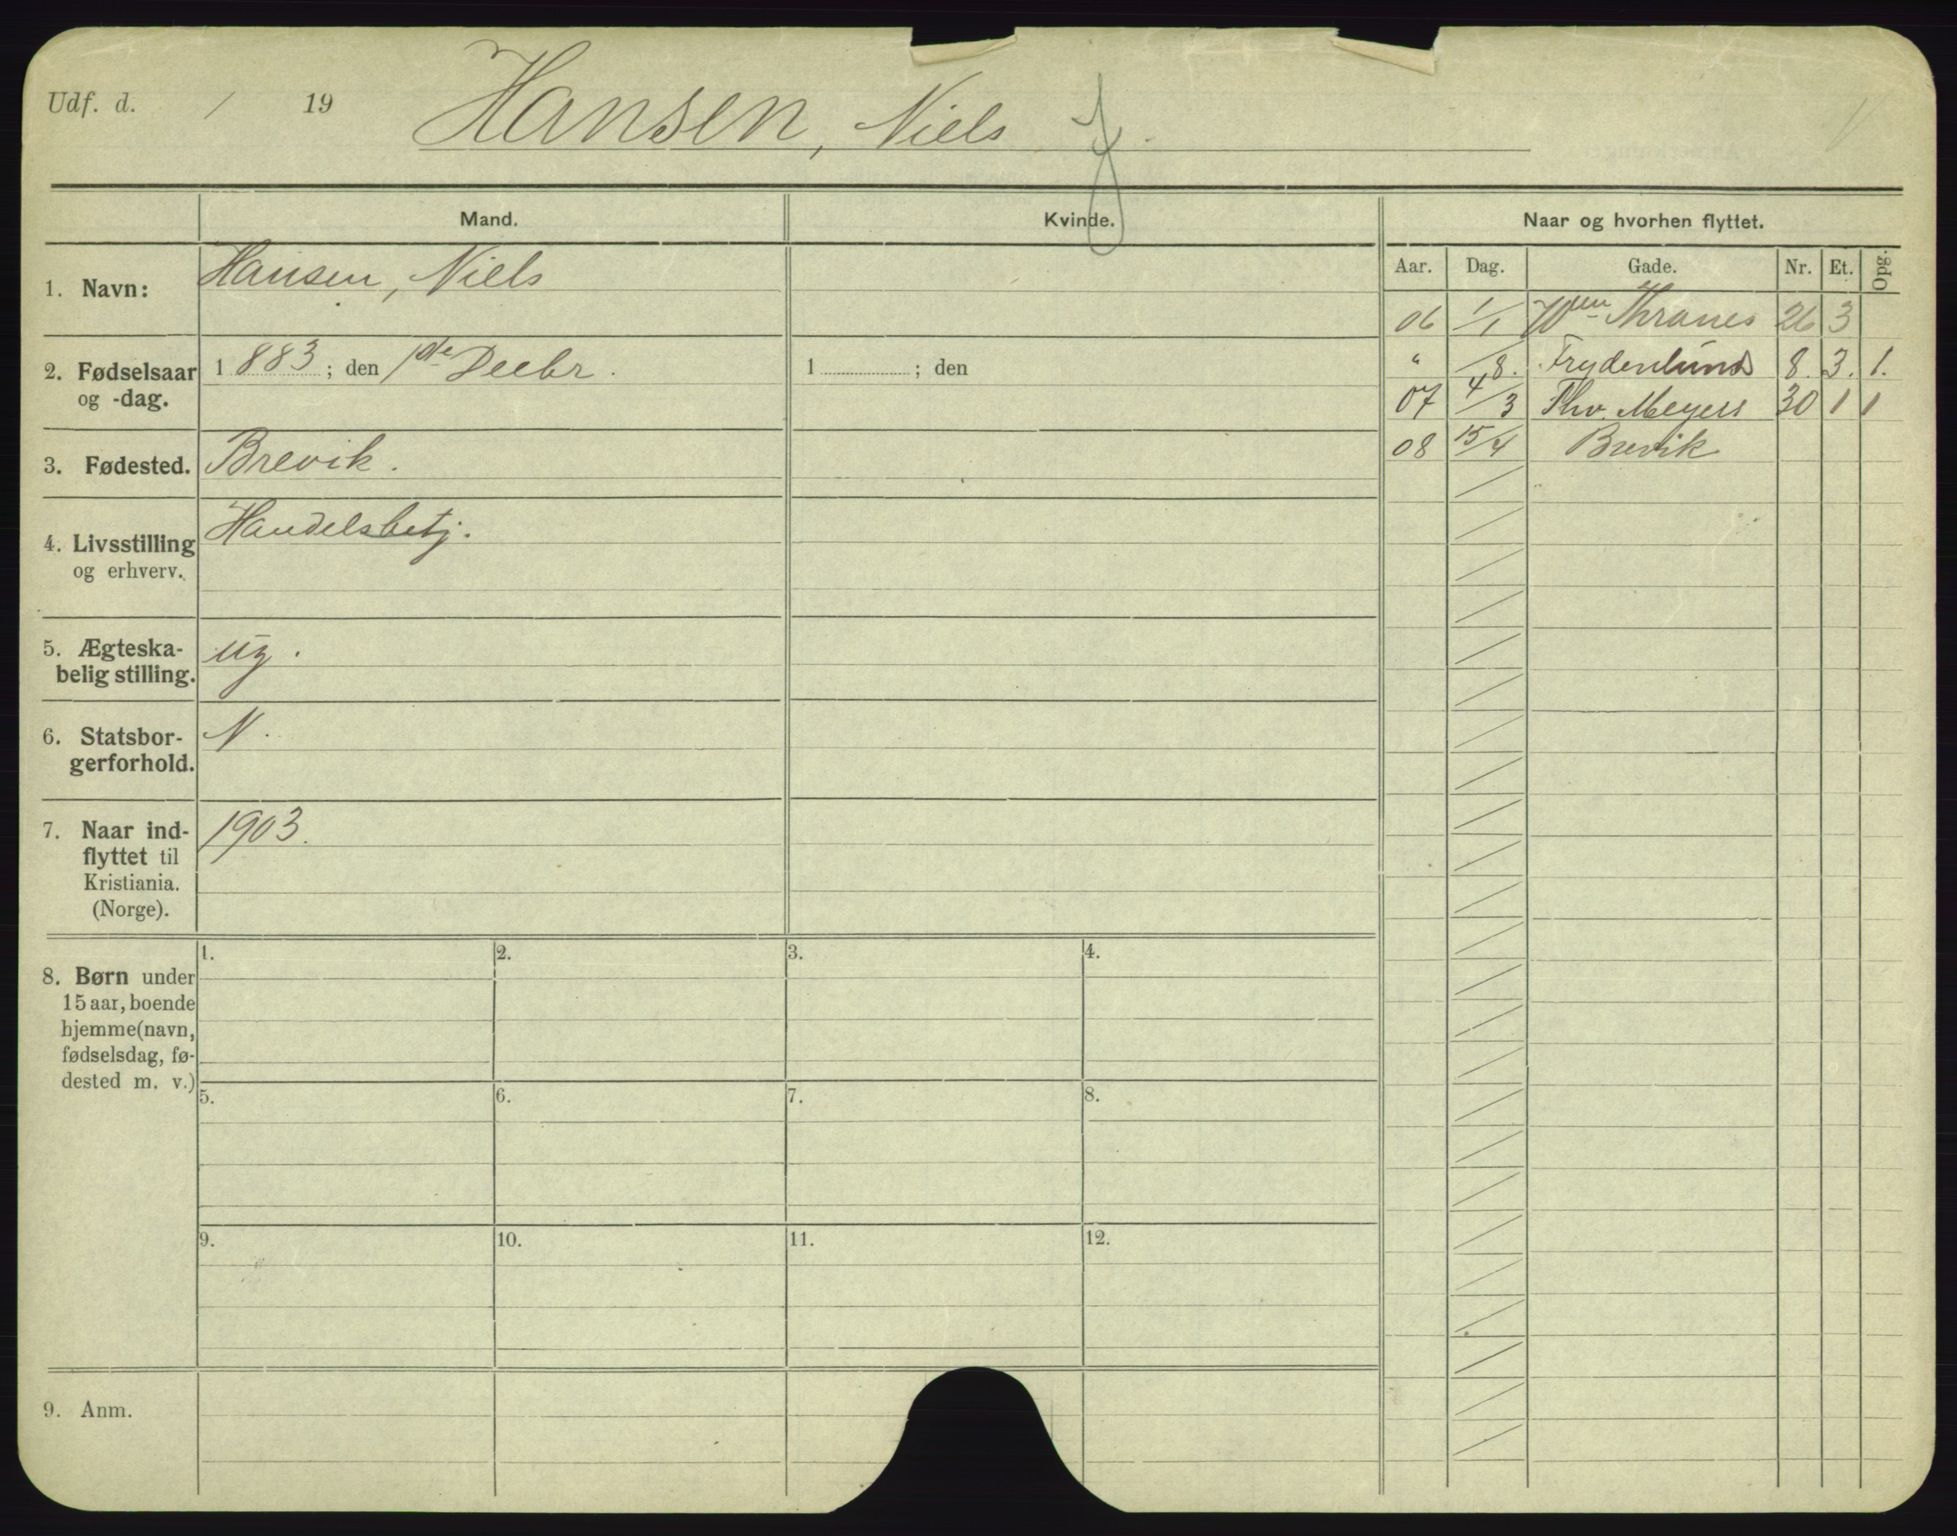 Udf. d. / 19 Hansen, Niels
Mand. Kvinde. Naar og hvorhen flyttet.
Aar. Dag. Gade. Nr. Et. Opg.
1. Navn: Hansen, Niels
06 1/1 Wm Thranes 26 3
2. Fødselsaar og -dag. 1883; den 1ste Decbr. 1 ; den
" /8. Frydenlunds 8. 3. 1.
07 4/3 Thv. Meyers 30 1 1
3. Fødested. Brevik.
08 15/4 Brevik
4. Livsstilling og erhverv. Handelsbetj.
5. Ægteska-
belig stilling. ug.
6. Statsbor-
gerforhold. N.
7. Naar ind-
flyttet til
Kristiania.
(Norge). 1903.
8. Børn under
15 aar, boende
hjemme (navn,
fødselsdag, fø-
dested m. v.)
1. 2. 3. 4.
5. 6. 7. 8.
9. 10. 11. 12.
9. Anm.